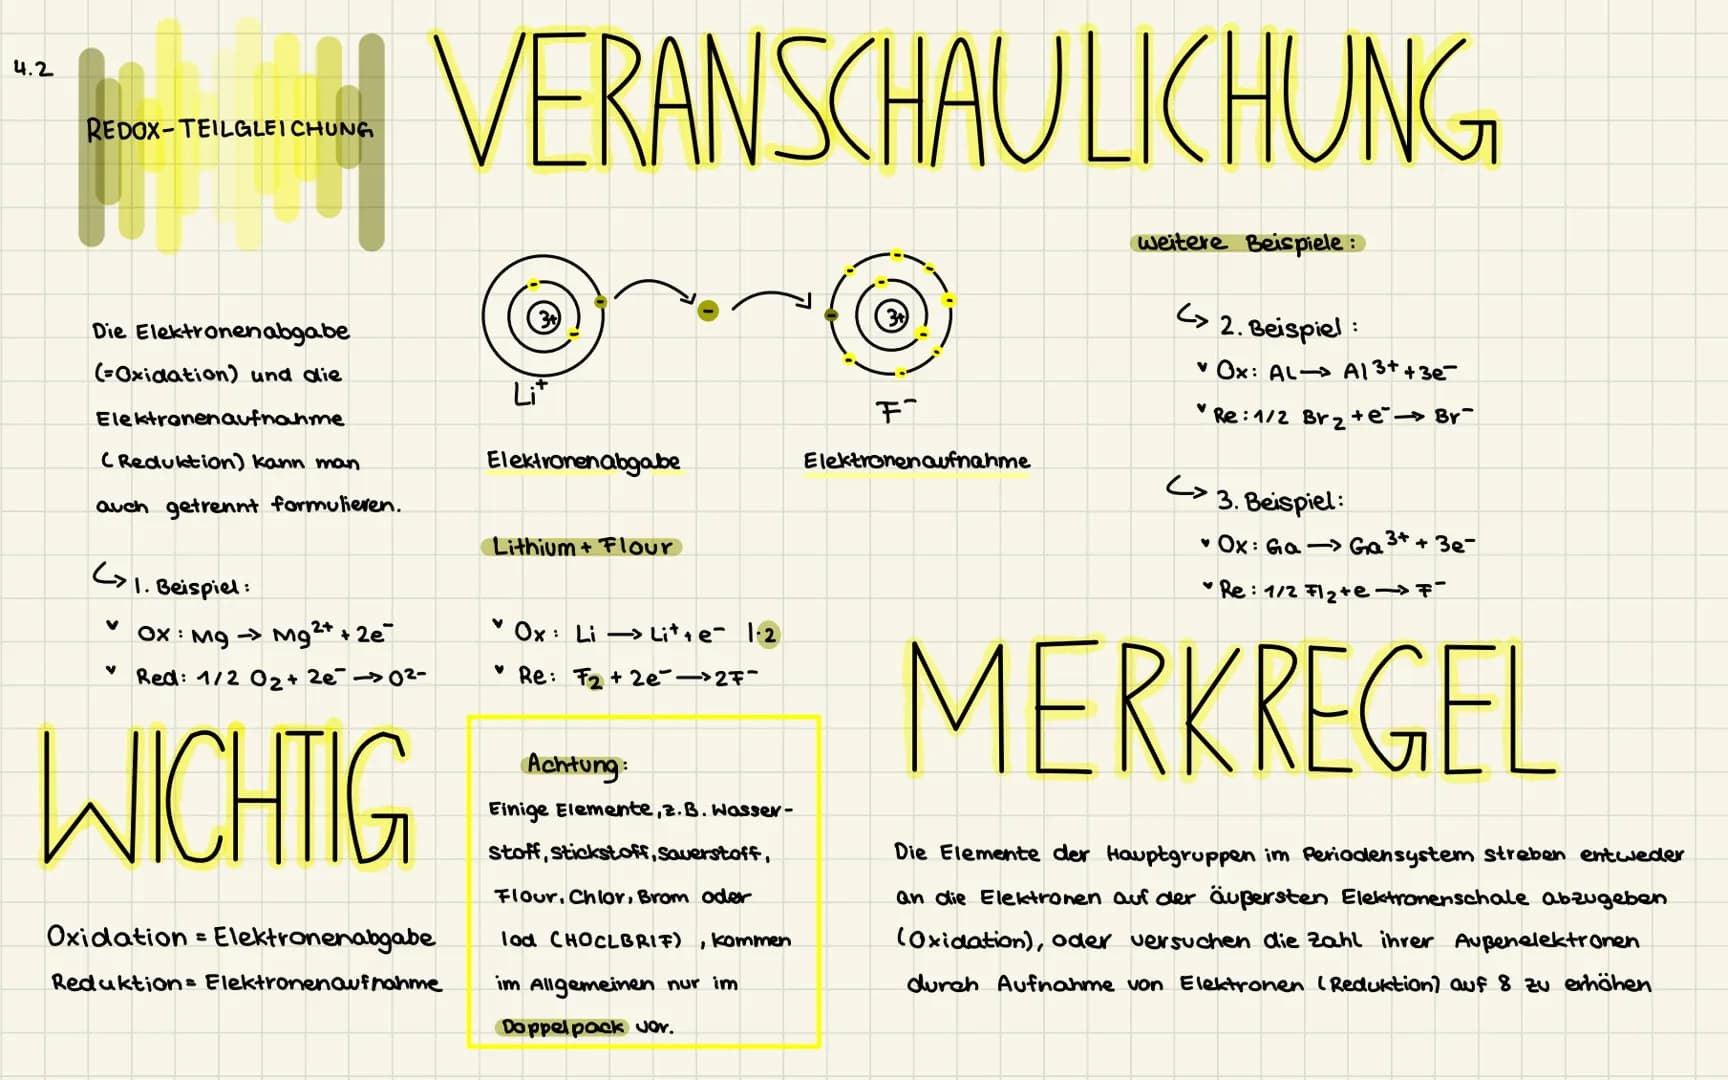 4.2
REDOX-TEILGLEICHUNG
VERANSCHAULICHUNG
Die Elektronenabgabe
(=Oxidation) und die
Elektronenaufnahme
(Reduktion) kann man
auch getrennt formulieren.
↳ 1. Beispiel:
Ox: Mg → Mg²⁺ + 2e⁻
Red: 1/2 O₂ + 2e⁻ → O²⁻
3+
Li⁺
Elektronenabgabe
-
3+
F⁻
Elektronenaufnahme
Lithium + Flour
Ox: Li → Li⁺ + e⁻ |·2
Re: F₂ + 2e⁻ → 2F⁻
weitere Beispiele:
↳ 2. Beispiel:
Ox: AL → Al³⁺ + 3e⁻
Re: 1/2 Br₂ + e⁻ → Br⁻
↳ 3. Beispiel:
Ox: Ga → Ga³⁺ + 3e⁻
Re: 1/2 Fl₂ + e → F⁻
WICHTIG
Oxidation = Elektronenabgabe
Reduktion = Elektronenaufnahme
Achtung:
Einige Elemente, z.B. Wasser-
stoff, Stickstoff, Sauerstoff,
Flour, Chlor, Brom oder
Iod (HOCLBRIF), kommen
im Allgemeinen nur im
Doppelpack vor.
MERKREGEL
Die Elemente der Hauptgruppen im Periodensystem streben entweder
an die Elektronen auf der äußersten Elektronenschale abzugeben
(Oxidation), oder versuchen die Zahl ihrer Außenelektronen
durch Aufnahme von Elektronen (Reduktion) auf 8 zu erhöhen